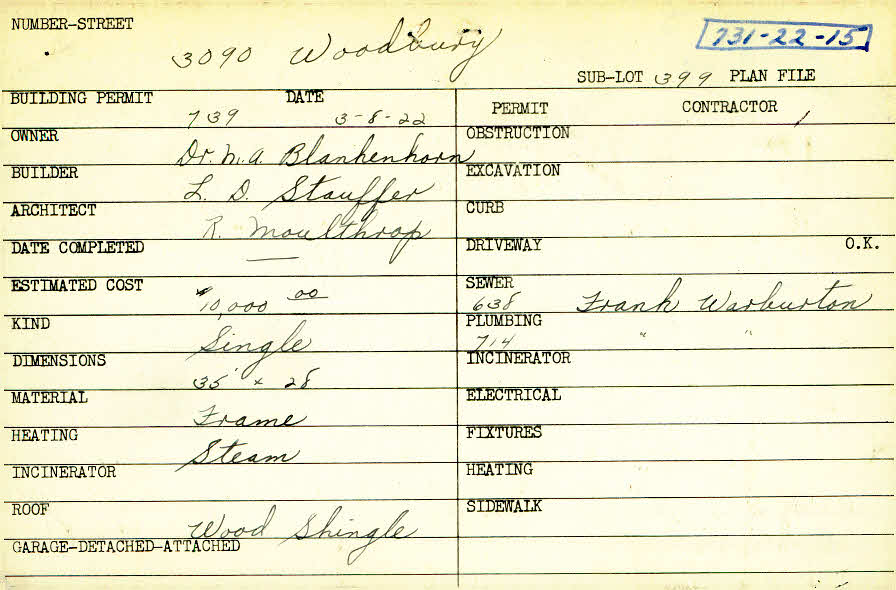 NUMBER-STREET
3090 Woodbury
731-22-15
SUB-LOT 399 PLAN FILE
BUILDING PERMIT DATE
739 3-8-22
OWNER
Dr. M. A. Blankenhorn
BUILDER
L. D. Stauffer
ARCHITECT
R. Moulthrop
DATE COMPLETED
—
ESTIMATED COST
$10,000 00
KIND
Single
DIMENSIONS
35' x 28
MATERIAL
Frame
HEATING
Steam
INCINERATOR
ROOF
Wood Shingle
GARAGE-DETACHED-ATTACHED
PERMIT CONTRACTOR
OBSTRUCTION
EXCAVATION
CURB
DRIVEWAY O.K.
SEWER
638 Frank Warburton
PLUMBING
714 " "
INCINERATOR
ELECTRICAL
FIXTURES
HEATING
SIDEWALK